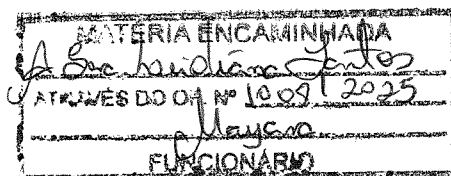 MATÉRIA ENCAMINHADA
A Sra Lindiana Santos
ATRAVÉS DO OF Nº 1009/2025
Mayara
FUNCIONÁRIO